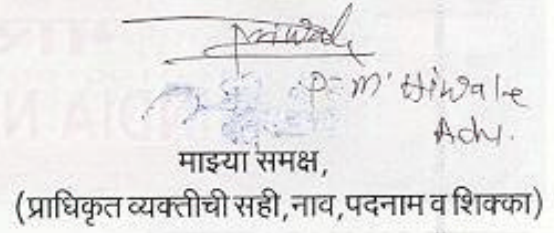 P. M. Hiwale
Adv.
माझ्या समक्ष,
(प्राधिकृत व्यक्तीची सही,नाव,पदनाम व शिक्का)